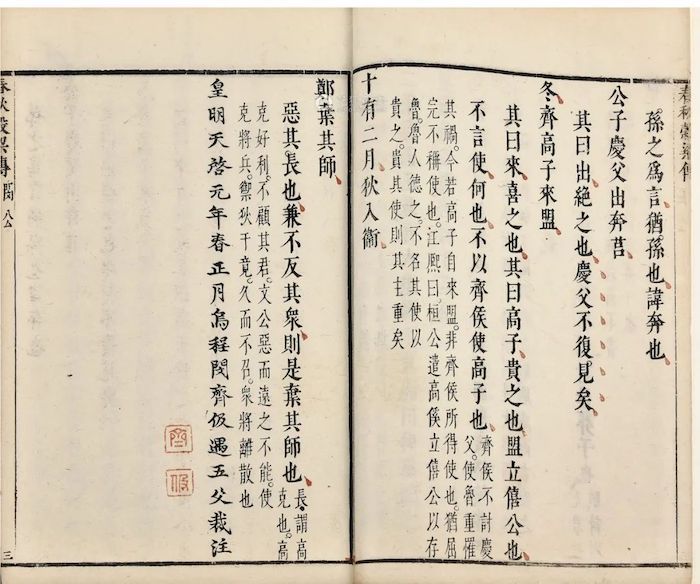 春秋穀梁傳
孫之爲言猶孫也諱奔也
公子慶父出奔莒
其曰出絕之也慶父不復見矣
冬齊高子來盟
其曰來喜之也其曰高子貴之也盟立僖公也
不言使何也不以齊侯使高子也
齊侯不討慶
父使魯重罹
其禍今若高子自來盟非齊侯所得使也猶屈
完不稱使也江熙曰桓公遣高傒立僖公以存
魯魯人德之不名其使以
貴之貴其使則其主重矣
十有二月狄入衛
鄭棄其師
惡其長也兼不反其衆則是棄其師也
長謂高
克也高
克好利不顧其君文公惡而遠之不能使
克將兵禦狄于竟久而不召衆將離散也
皇明天啓元年春正月烏程閔齊伋遇五父裁注
齊
伋
春秋穀梁傳 閔公
三